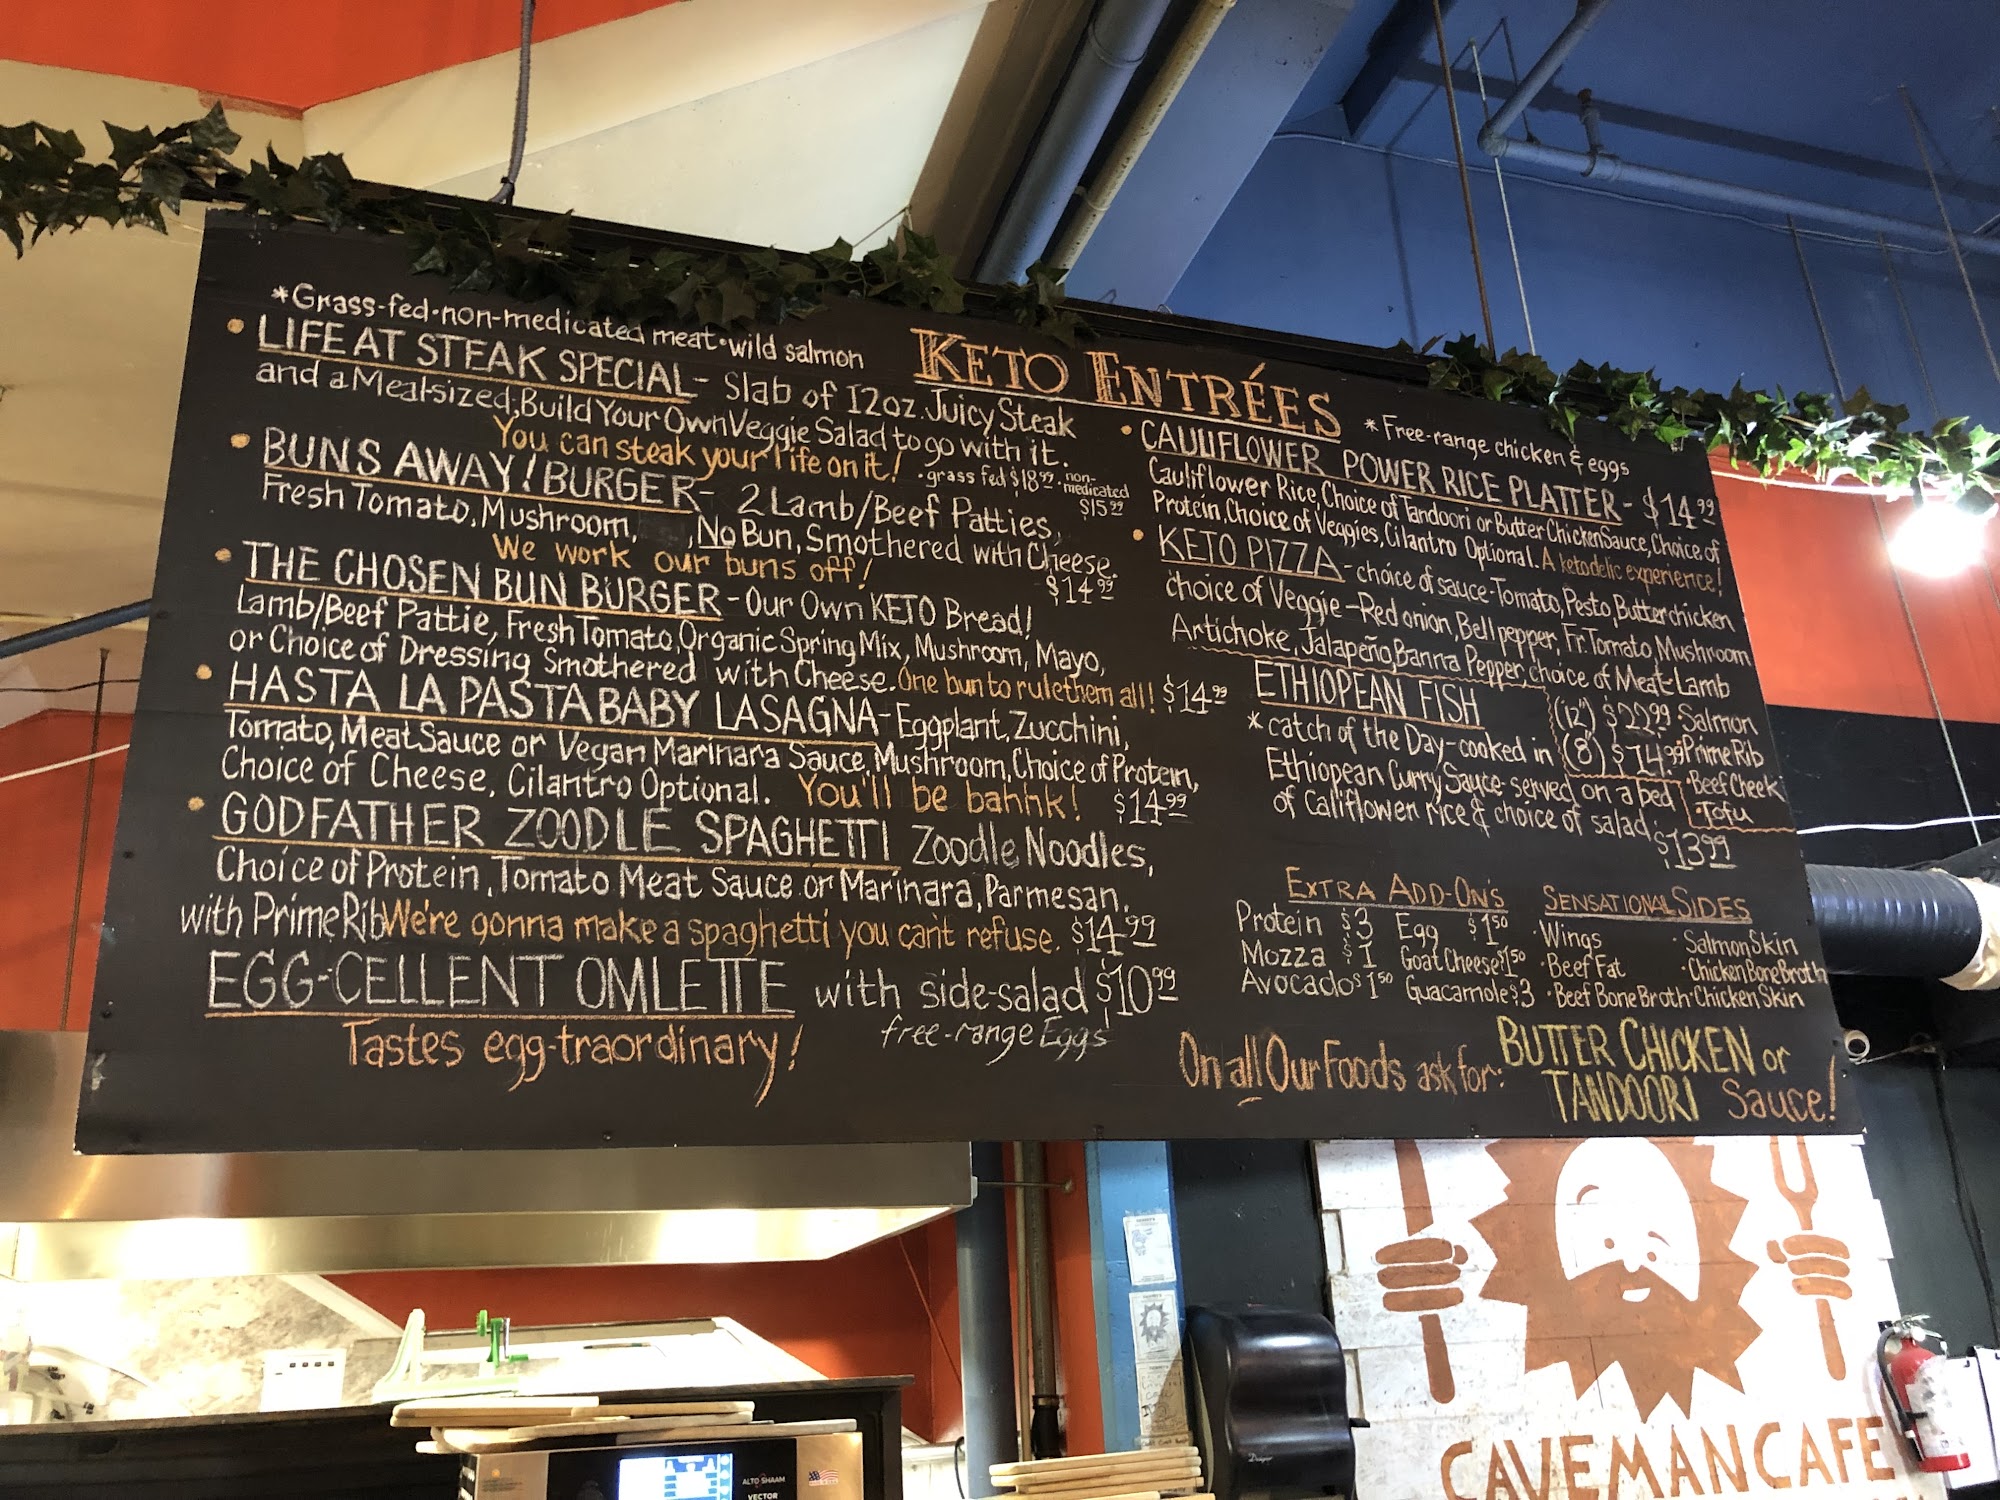 *Grass-fed·non-medicated meat·wild salmon
KETO ENTRÉES
*Free-range chicken & eggs
• LIFE AT STEAK SPECIAL- Slab of 12oz. Juicy Steak
and a Meal-sized, Build Your Own Veggie Salad to go with it.
You can steak your life on it! ·grass fed $18.99 · non-medicated $15.99
• BUNS AWAY! BURGER- 2 Lamb/Beef Patties,
Fresh Tomato, Mushroom, , No Bun, Smothered with Cheese.
We work our buns off! $14.99
• THE CHOSEN BUN BURGER-Our Own KETO Bread!
Lamb/Beef Pattie, Fresh Tomato, Organic Spring Mix, Mushroom, Mayo,
or Choice of Dressing Smothered with Cheese. One bun to rule them all! $14.99
• HASTA LA PASTA BABY LASAGNA-Eggplant, Zucchini,
Tomato, Meat Sauce or Vegan Marinara Sauce, Mushroom, Choice of Protein,
Choice of Cheese, Cilantro Optional. You'll be bahhk! $14.99
• GODFATHER ZOODLE SPAGHETTI Zoodle Noodles,
Choice of Protein, Tomato Meat Sauce or Marinara, Parmesan,
with Prime Rib We're gonna make a spaghetti you can't refuse. $14.99
EGG-CELLENT OMLETTE with side-salad $10.99
Tastes egg-traordinary! free-range Eggs
• CAULIFLOWER POWER RICE PLATTER- $14.99
Cauliflower Rice, Choice of Tandoori or Butter Chicken Sauce, Choice of
Protein, Choice of Veggies, Cilantro Optional. A ketodelic experience!
• KETO PIZZA-choice of sauce-Tomato, Pesto, Butter chicken
choice of Veggie-Red onion, Bell pepper, Fr. Tomato, Mushroom
Artichoke, Jalapeño, Banna Pepper, choice of Meat·Lamb
(12") $22.99 ·Salmon
(8") $14.99 ·Prime Rib
·Beef Cheek
·Tofu
ETHIOPEAN FISH
*catch of the Day-cooked in
Ethiopean Curry Sauce-served on a bed
of Califlower rice & choice of salad.
$13.99
EXTRA ADD-ON'S
Protein $3 Egg $1.50
Mozza $1 Goat Cheese $1.50
Avocado $1.50 Guacamole $3
SENSATIONAL SIDES
·Wings ·Salmon Skin
·Beef Fat ·Chicken Bone Broth
·Beef Bone Broth ·Chicken Skin
On all Our Foods ask for: BUTTER CHICKEN or
TANDOORI Sauce!
CAVEMAN CAFE
ALTO SHAAM
VECTOR